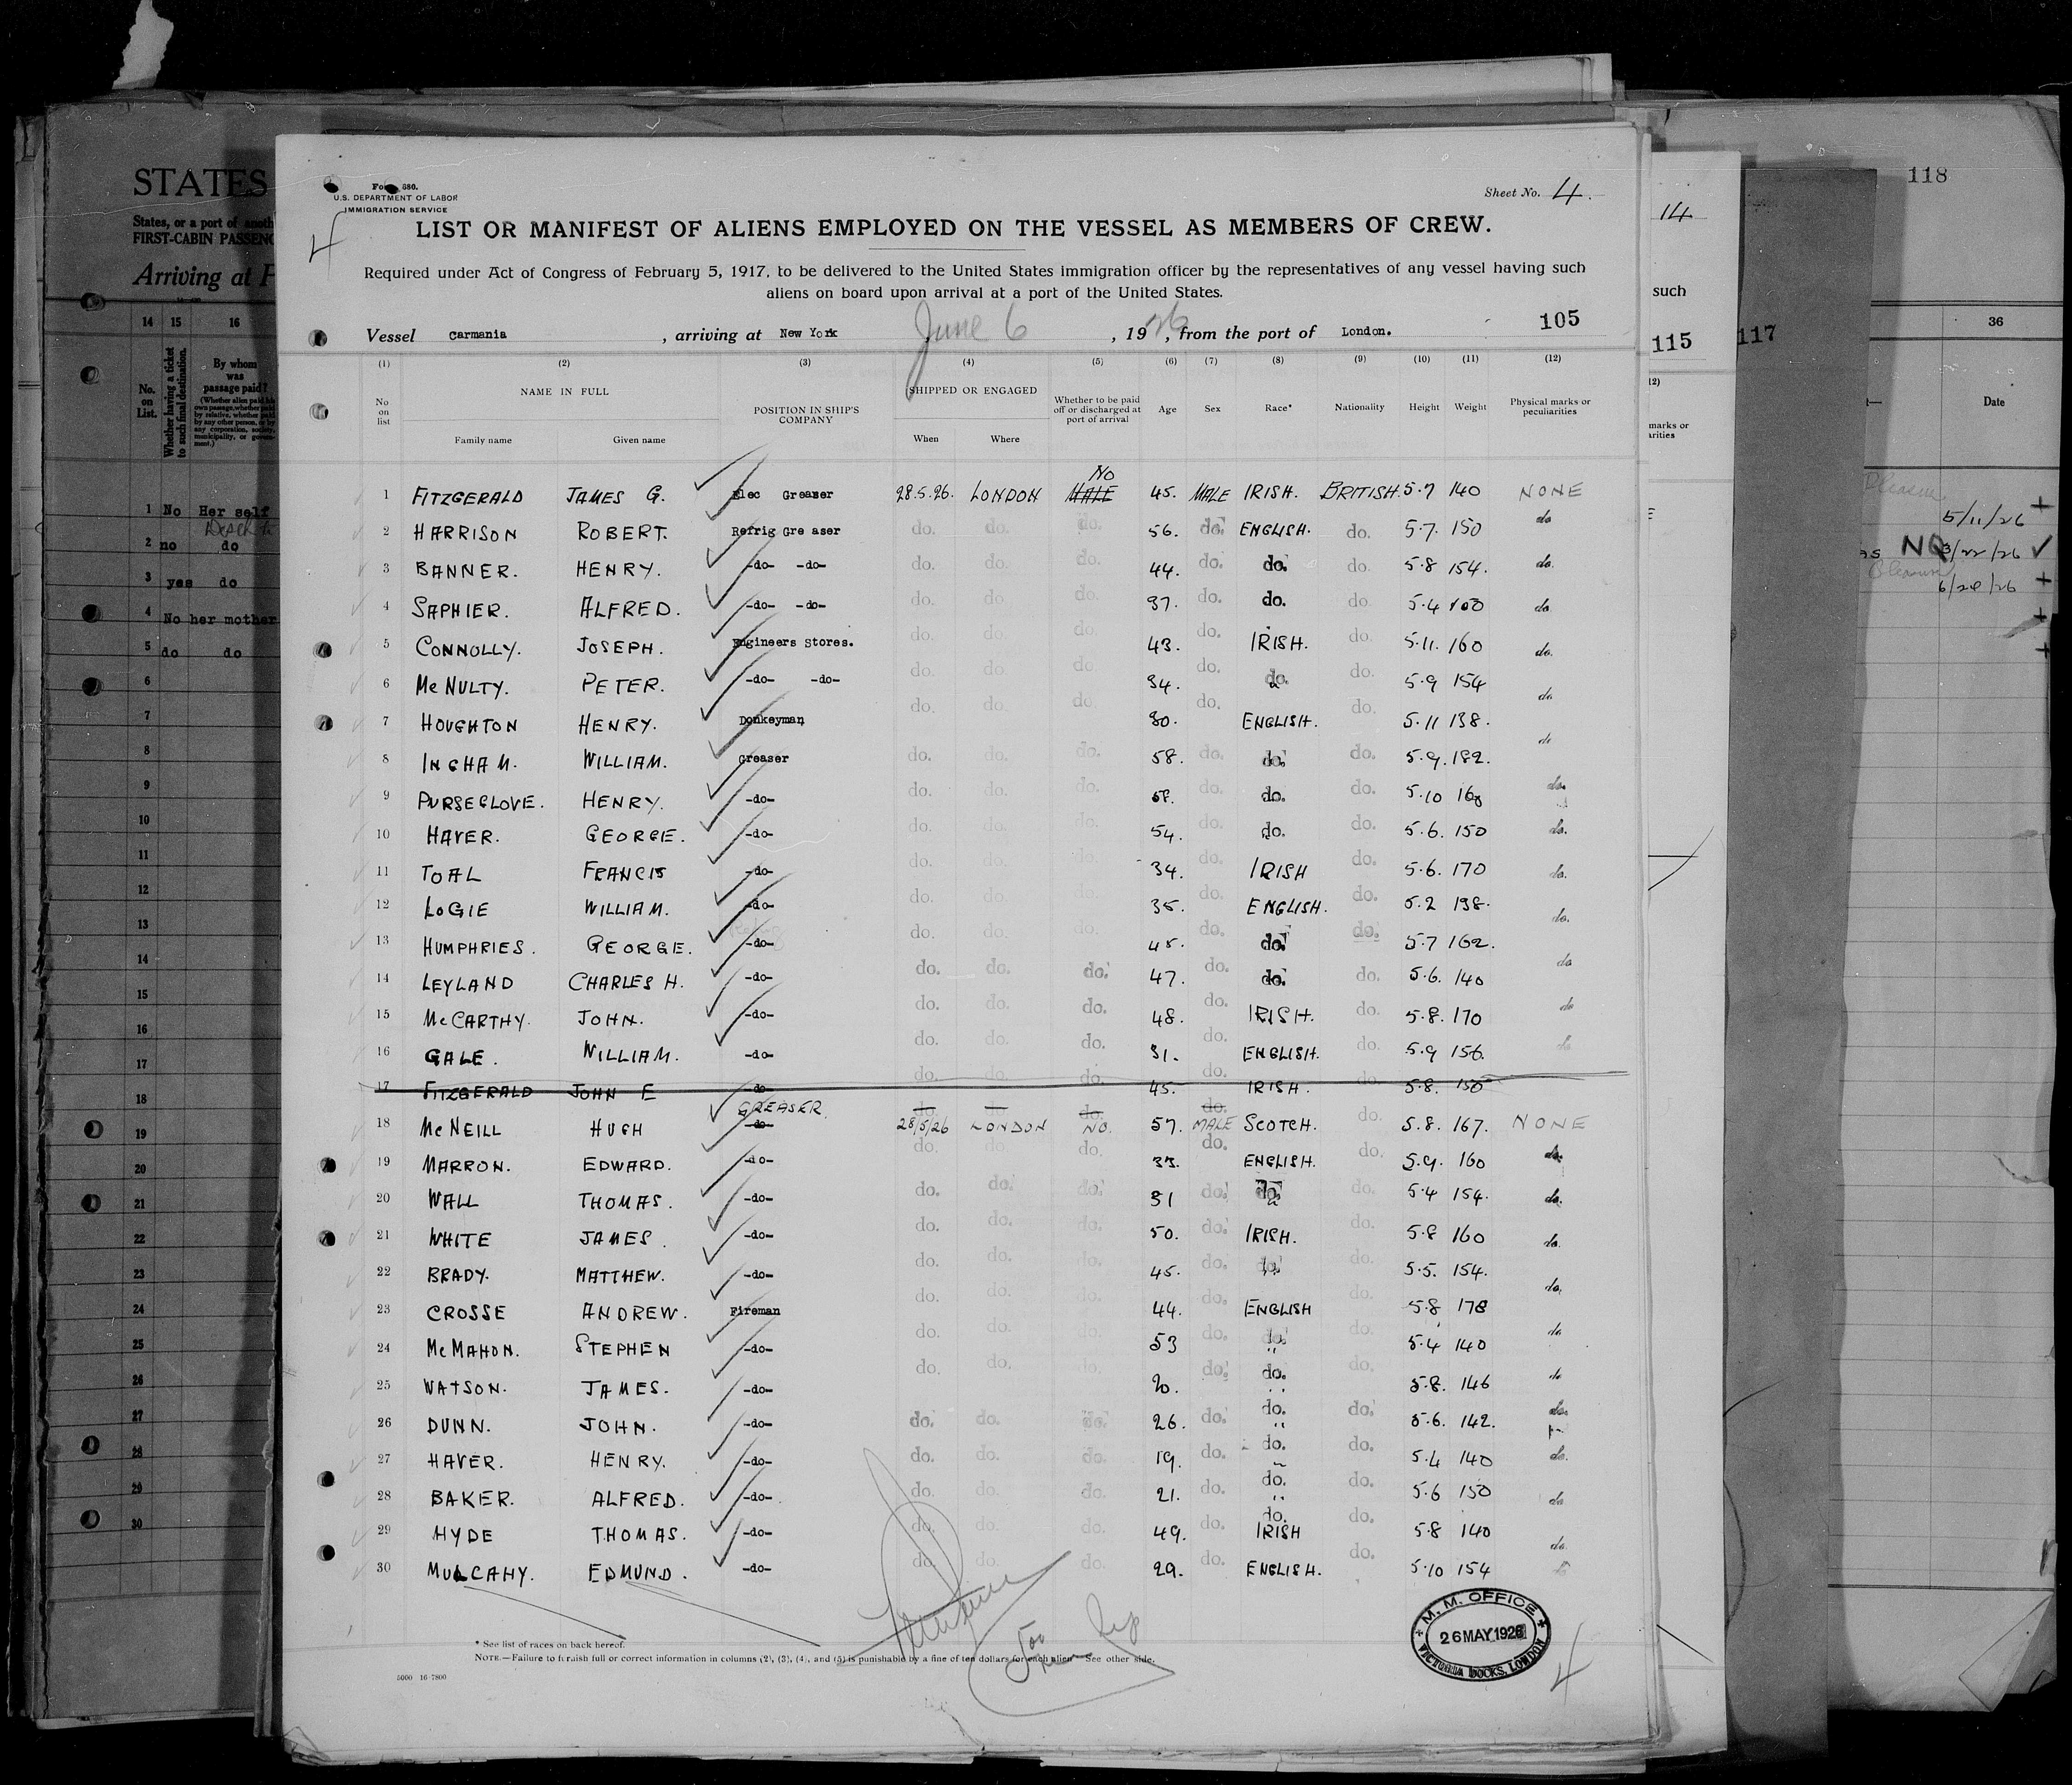 118
STATES
States, or a port of anoth
FIRST-CABIN PASSENG
Arriving at P
14 15 16
No. on List.
Whether having a ticket to such final destination.
By whom was passage paid?
(Whether alien paid his own passage, whether paid by relative, whether paid by any other person, or by any corporation, society, municipality, or government.)
1 No Her self
2 no do
3 yes do
4 No her mother
5 do do
6
7
8
9
10
11
12
13
14
15
16
17
18
19
20
21
22
23
24
25
26
27
28
29
30
Form 680.
U.S. DEPARTMENT OF LABOR
IMMIGRATION SERVICE
Sheet No. 4.
4
LIST OR MANIFEST OF ALIENS EMPLOYED ON THE VESSEL AS MEMBERS OF CREW.
Required under Act of Congress of February 5, 1917, to be delivered to the United States immigration officer by the representatives of any vessel having such
aliens on board upon arrival at a port of the United States.
105
Vessel Carmania, arriving at New York June 6, 1926, from the port of London.
(1) (2) (3) (4) (5) (6) (7) (8) (9) (10) (11) (12)
No on list NAME IN FULL POSITION IN SHIP'S COMPANY SHIPPED OR ENGAGED Whether to be paid off or discharged at port of arrival Age Sex Race* Nationality Height Weight Physical marks or peculiarities
Family name Given name When Where
1 FITZGERALD JAMES G. Elec Greaser 28.5.26. LONDON MALE NO 45. MALE IRISH. BRITISH. 5.7 140 NONE
2 HARRISON ROBERT. Refrig Gre aser do. do. do. 56. do. ENGLISH. do. 5.7. 150 do
3 BANNER. HENRY. -do- -do- do. do. do. 44. do. do. do. 5.8 154. do.
4 SAPHIER. ALFRED. -do- -do- do. do. do. 37. do. do. do. 5.4 do.
5 CONNOLLY. JOSEPH. Engineers Stores. do. do. do. 43. do. IRISH. do. 5.11. 160 do.
6 McNULTY. PETER. -do- -do- do. do. do. 34. do. do. do. 5.9 154 do.
7 HOUGHTON HENRY. Donkeyman do. do. do. 30. do. ENGLISH. do. 5.11 138. do
8 INGHAM. WILLIAM. Greaser do. do. do. 58. do. do. do. 5.9. 182.
9 PURSEGLOVE. HENRY. -do- do. do. do. do. do. do. 5.10 do.
10 HAVER. GEORGE. -do- do. do. do. 54. do. do. do. 5.6. 150 do.
11 TOAL FRANCIS -do- do. do. do. 34. do. IRISH do. 5.6. 170 do.
12 LOGIE WILLIAM. -do- do. do. do. 35. do. ENGLISH. do. 5.2 138. do.
13 HUMPHRIES. GEORGE. -do- do. do. do. 45. do. do. do. 5.7 162. do
14 LEYLAND CHARLES H. -do- do. do. do. 47. do. do. do. 5.6. 140
15 McCARTHY. JOHN. -do- do. do. do. 48. do. IRISH. do. 5.8. 170 do
16 GALE. WILLIAM. -do- do. do. do. 31. do. ENGLISH. do. 5.9 156. do
17 FITZGERALD JOHN E -do- do. do. do. 45. do. IRISH. do. 5.8. 150
18 McNEILL HUGH -do- GREASER. 28/5/26 LONDON NO. 57. MALE SCOTCH. do. 5.8. 167. NONE
19 MARRON. EDWARD. -do- do. do. do. 33. do. ENGLISH. do. 5.9. 160 do.
20 WALL THOMAS. -do- do. do. do. 31 do. do. do. 5.4 154. do.
21 WHITE JAMES. -do- do. do. do. 50. do. IRISH. do. 5.8 160 do.
22 BRADY. MATTHEW. -do- do. do. do. 45. do. do. do. 5.5. 154. do.
23 CROSSE ANDREW. Fireman do. do. do. 44. do. ENGLISH do. 5.8 178
24 McMAHON. STEPHEN -do- do. do. do. 53 do. do. do. 5.4 140 do
25 WATSON. JAMES. -do- do. do. do. 20. do. do. do. 5.8. 146 do
26 DUNN. JOHN. -do- do. do. do. 26. do. do. do. 5.6. 142. do.
27 HAVER. HENRY. -do- do. do. do. 19. do. do. do. 5.4 140 do.
28 BAKER. ALFRED. -do- do. do. do. 21. do. do. do. 5.6 150 do
29 HYDE THOMAS. -do- do. do. do. 49. do. do. IRISH do. 5.8 140 do.
30 MULCAHY. EDMUND. -do- do. do. do. 29. do. ENGLISH. do. 5.10 154
* See list of races on back hereof.
NOTE.—Failure to furnish full or correct information in columns (2), (3), (4), and (5) is punishable by a fine of ten dollars for each alien. See other side.
5000 16-7800
M. M. OFFICE
26 MAY 1926
VICTORIA DOCKS, LONDON
4
14
such
115
117
12)
marks or
arities
36
Date
Pleasure
5/11/26 +
NO 3/22/26 ✓
Pleasure
6/28/26 +